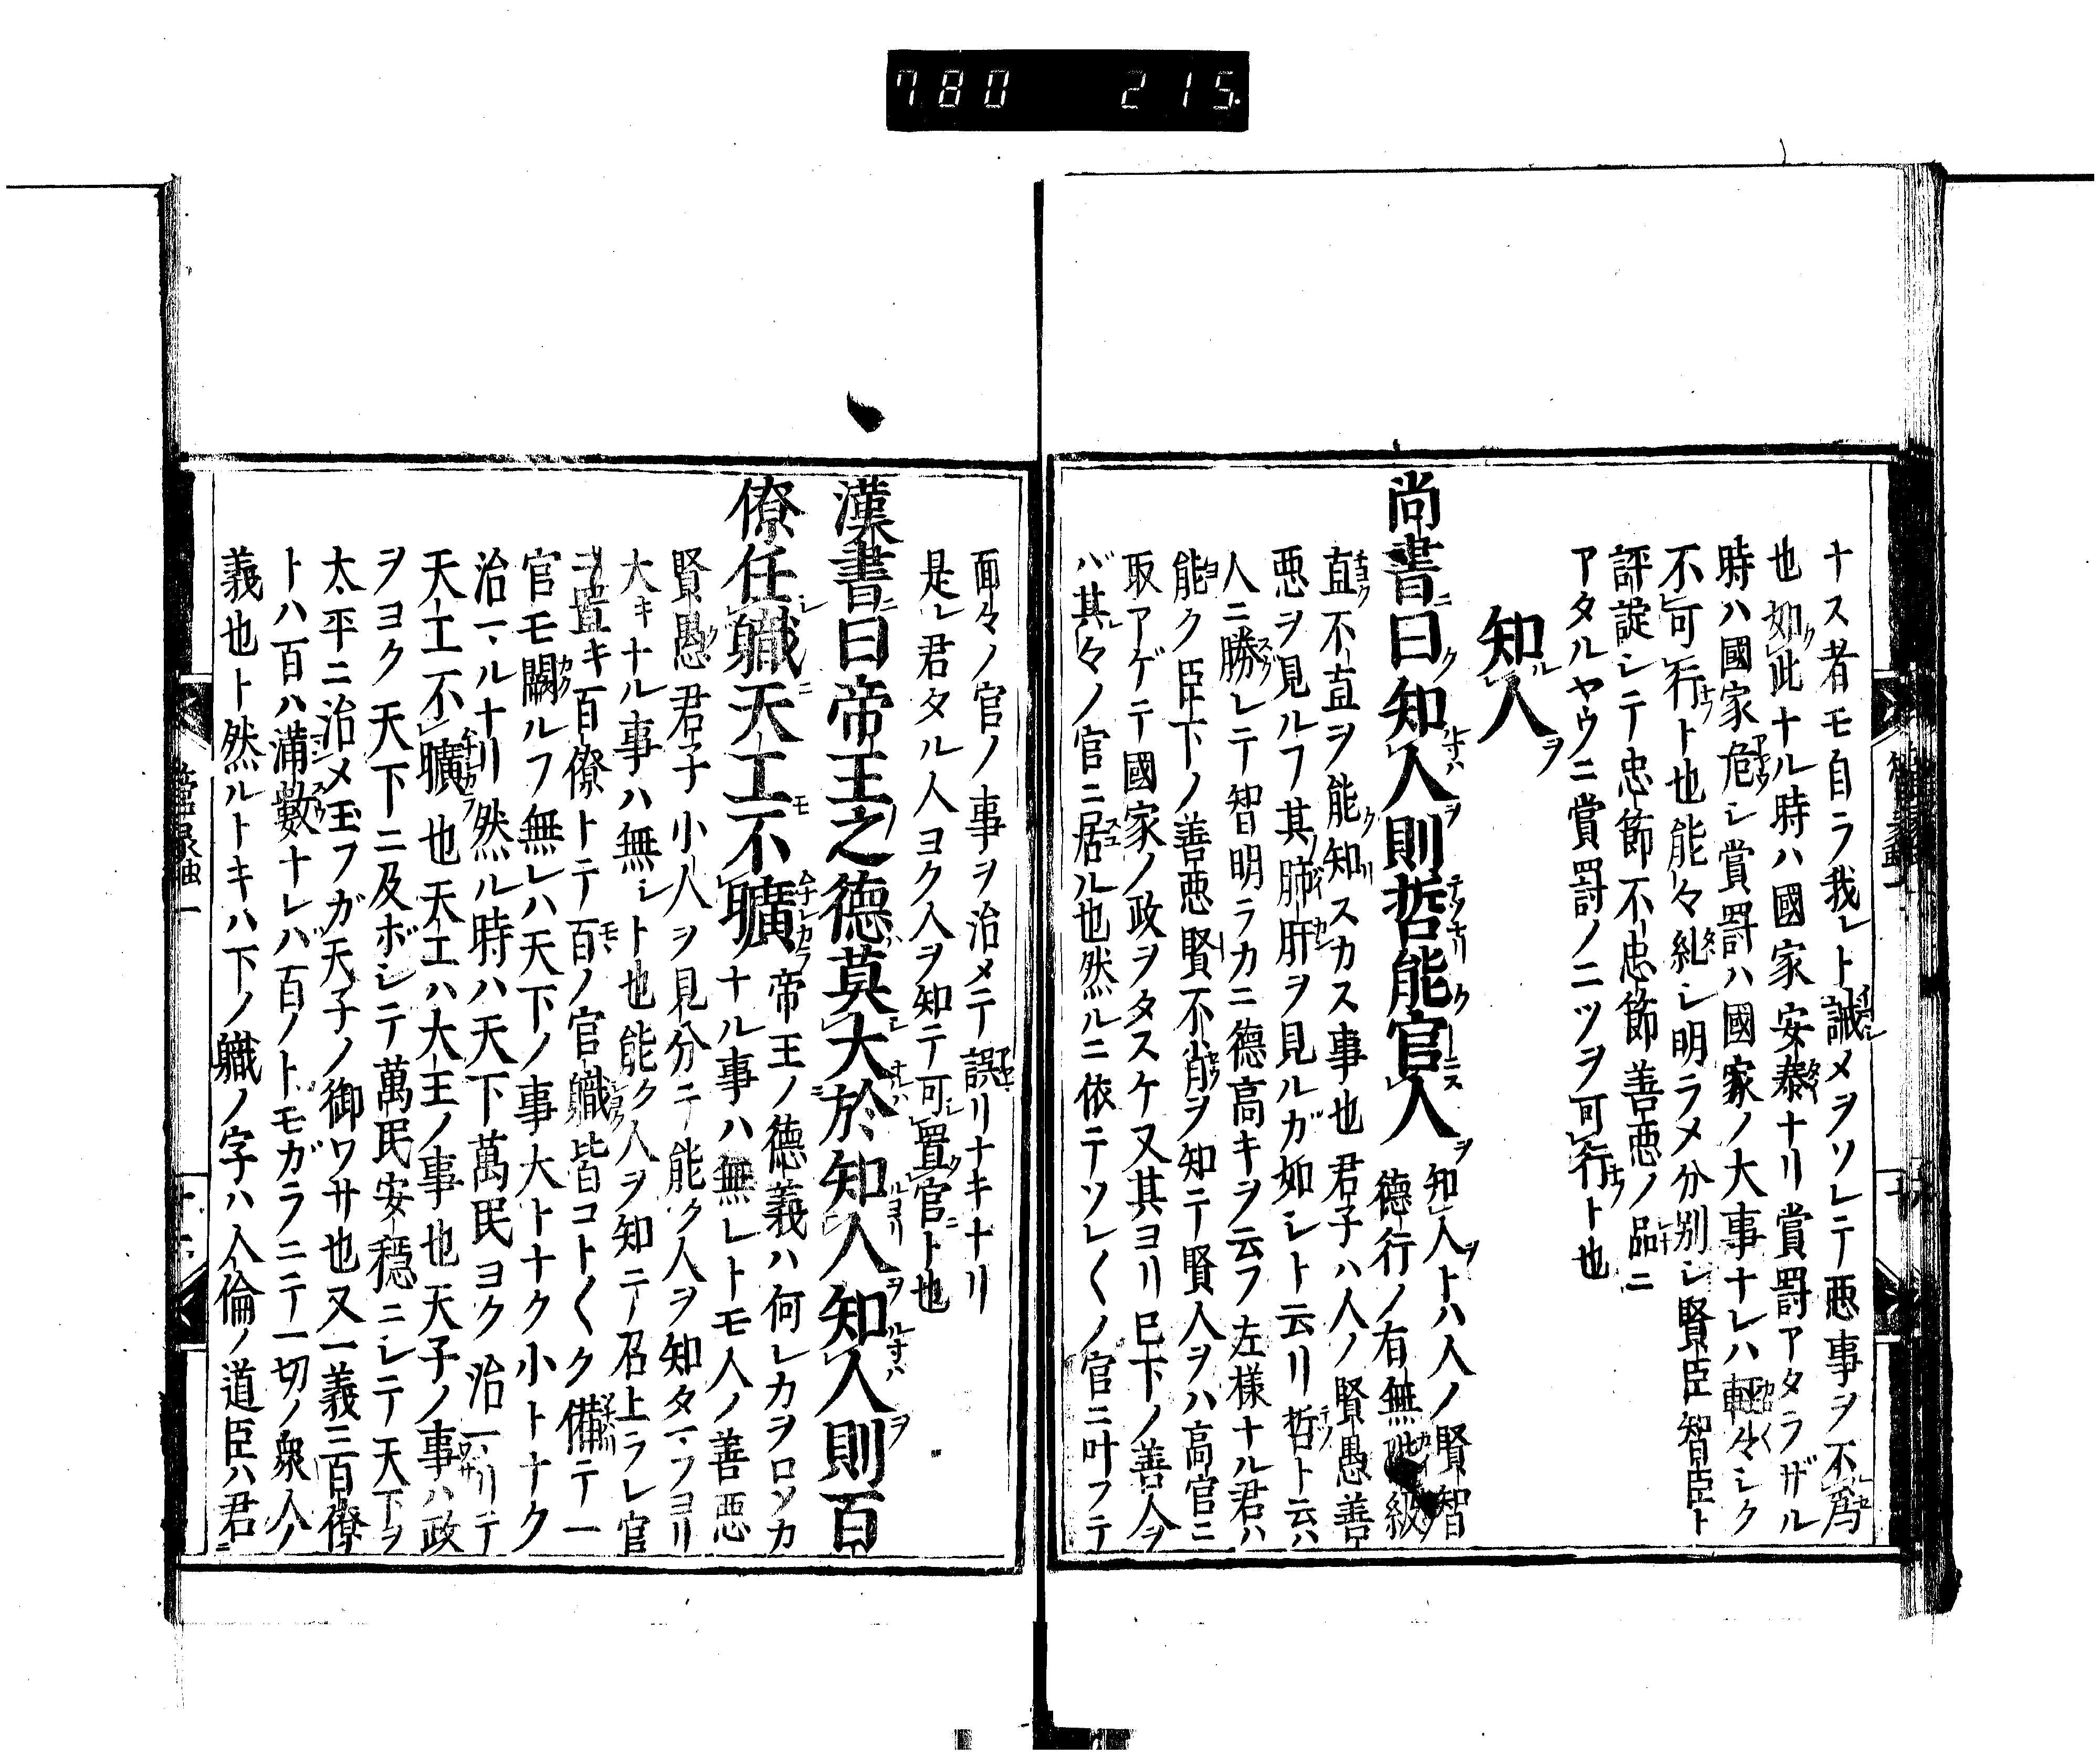 780 215
ナス者モ自ラ我レト誡メヲソレテ悪事ヲ不為
也如此ナル時ハ國家安泰ナリ賞罰アタラザル
時ハ國家危シ賞罰ハ國家ノ大事ナレハ輕々シク
不可行ト也能々糺シ明ラメ分別シ賢臣智臣ト
評諚シテ忠節不忠節善悪ノ品ニ
アタルヤウニ賞罰ノ二ツヲ可行ト也
知人
尚書曰知人則哲能官人
知人トハ人ノ賢智
德行ノ有無 級
直不直ヲ能知リスカス事也君子ハ人ノ賢愚善
悪ヲ見ルフ其肺肝ヲ見ルガ如シト云リ哲ト云ハ
人ニ勝レテ智明ラカニ德高キヲ云フ左様ナル君ハ
能ク臣下ノ善悪賢不肖ヲ知テ賢人ヲハ高官ニ
取アゲテ國家ノ政ヲタスケ又其ヨリ巳下ノ善人ヲ
バ其レ々ノ官ニ居ル也然ルニ依テツレ〱ノ官ニ叶フテ
面々ノ官ノ事ヲ治メテ誤リナキナリ
是レ君タル人ヨク人ヲ知テ可置官ト也
漢書曰帝王之德莫大於知人知人則百
僚任職天工不曠
帝王ノ德義ハ何レカヲロソカ
ナル事ハ無レトモ人ノ善悪
賢愚君子小人ヲ見分テ能ク人ヲ知タマフヨリ
大キナル事ハ無シト也能ク人ヲ知テ召上ラレ官
ニ置キ百僚トテ百ノ官職皆コト〱ク備テ一
官モ闕ルフ無レハ天下ノ事大トナク小トナク
治マルナリ然ル時ハ天下萬民ヨク治マリテ
天工不曠也天工ハ大王ノ事也天子ノ事ハ政
ヲヨク天下ニ及ボシテ萬民安穏ニシテ天下ヲ
太平ニ治メ玉フガ天子ノ御ワサ也又一義ニ百僚
トハ百ハ満數ナレバ百ノトモガラニテ一切ノ衆人ノ
義也ト然ルトキハ下ノ職ノ字ハ人倫ノ道臣ハ君ニ